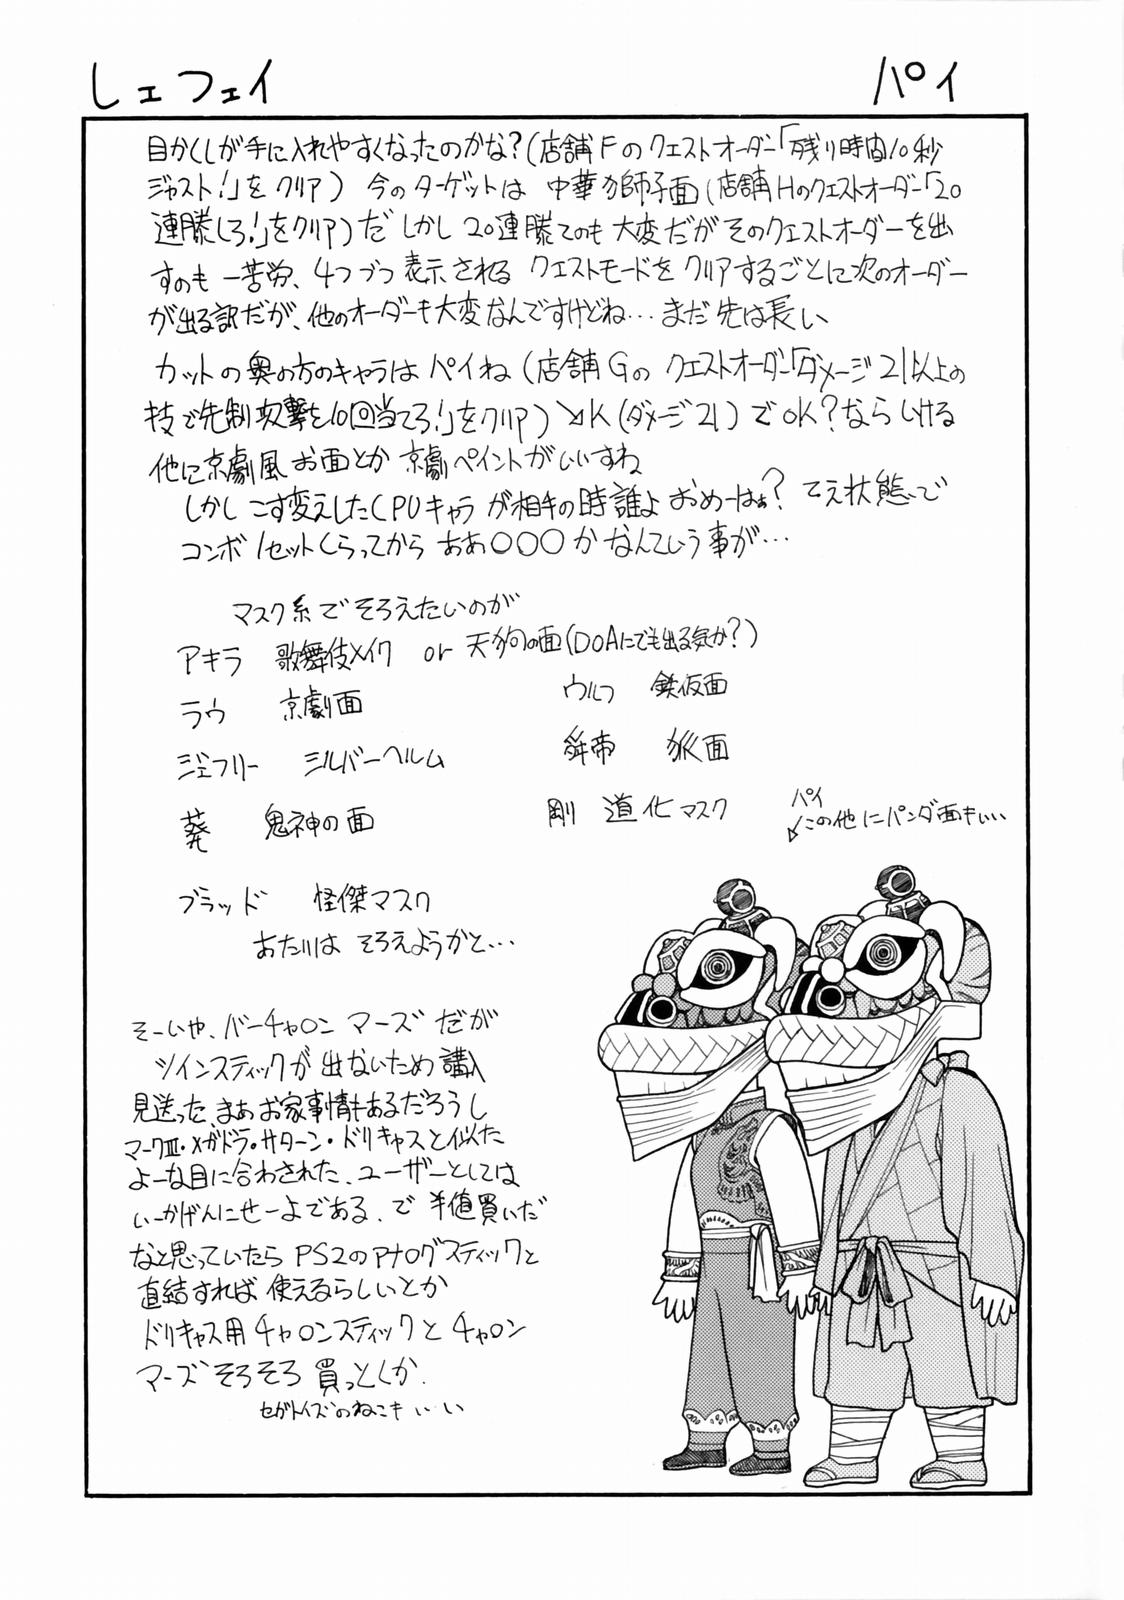 しェフェイ
パイ
目かくしが手に入れやすくなったのかな?(店舗Fのクエストオーダー「残り時間10秒
ジャスト!」をクリア) 今のターゲットは 中華ノ獅子面(店舗Hのクエストオーダー「20
連勝しろ!」をクリア)だ しかし 20連勝てのも 大変だがそのクエストオーダーを出
すのも 一苦労、4つづつ 表示される クエストモードを クリアするごとに次のオーダー
が出る訳だが、他のオーダーも大変なんですけどね… まだ 先は長い
カットの奥の方のキャラは パイね (店舗Gの クエストオーダー「ダメージ21以上の
技で先制攻撃を10回当てろ!」をクリア) ↘K(ダメージ21)でOK?なら いける
他に京劇風 お面とか 京劇ペイントがいいすね
しかし こす変えしたCPUキャラ が相手の時誰よ おめーはぁ? てえ状態で
コンボ1セットくらってから ああ○○○か なんていう事が…
マスク系で そろえたいのが
アキラ 歌舞伎メイク or 天狗の面(DOAにでも出る気か?)
ラウ 京劇面
ウルフ 鉄仮面
ジェフリー シルバーヘルム
舜帝 狐面
葵 鬼神の面
剛 道化マスク
パイ
この他にパンダ面もいい
ブラッド 怪傑マスク
あたりは そろえようかと…
そーいや、バーチャロン マーズ だが
ツインスティックが 出ないため 購入
見送った、まあ お家事情もあるだろうし
マークⅢ・メガドラ・サターン・ドリキャスと似た
よーな目に合わされた、ユーザーとしては
いーかげんにせーよである、で 半値買いだ
なと思っていたら PS2のアナログスティックと
直結すれば 使えるらしいとか
ドリキャス用 チャロンスティックと チャロン
マーズ そろそろ 買っとくか.
セガトイズのねこもいい